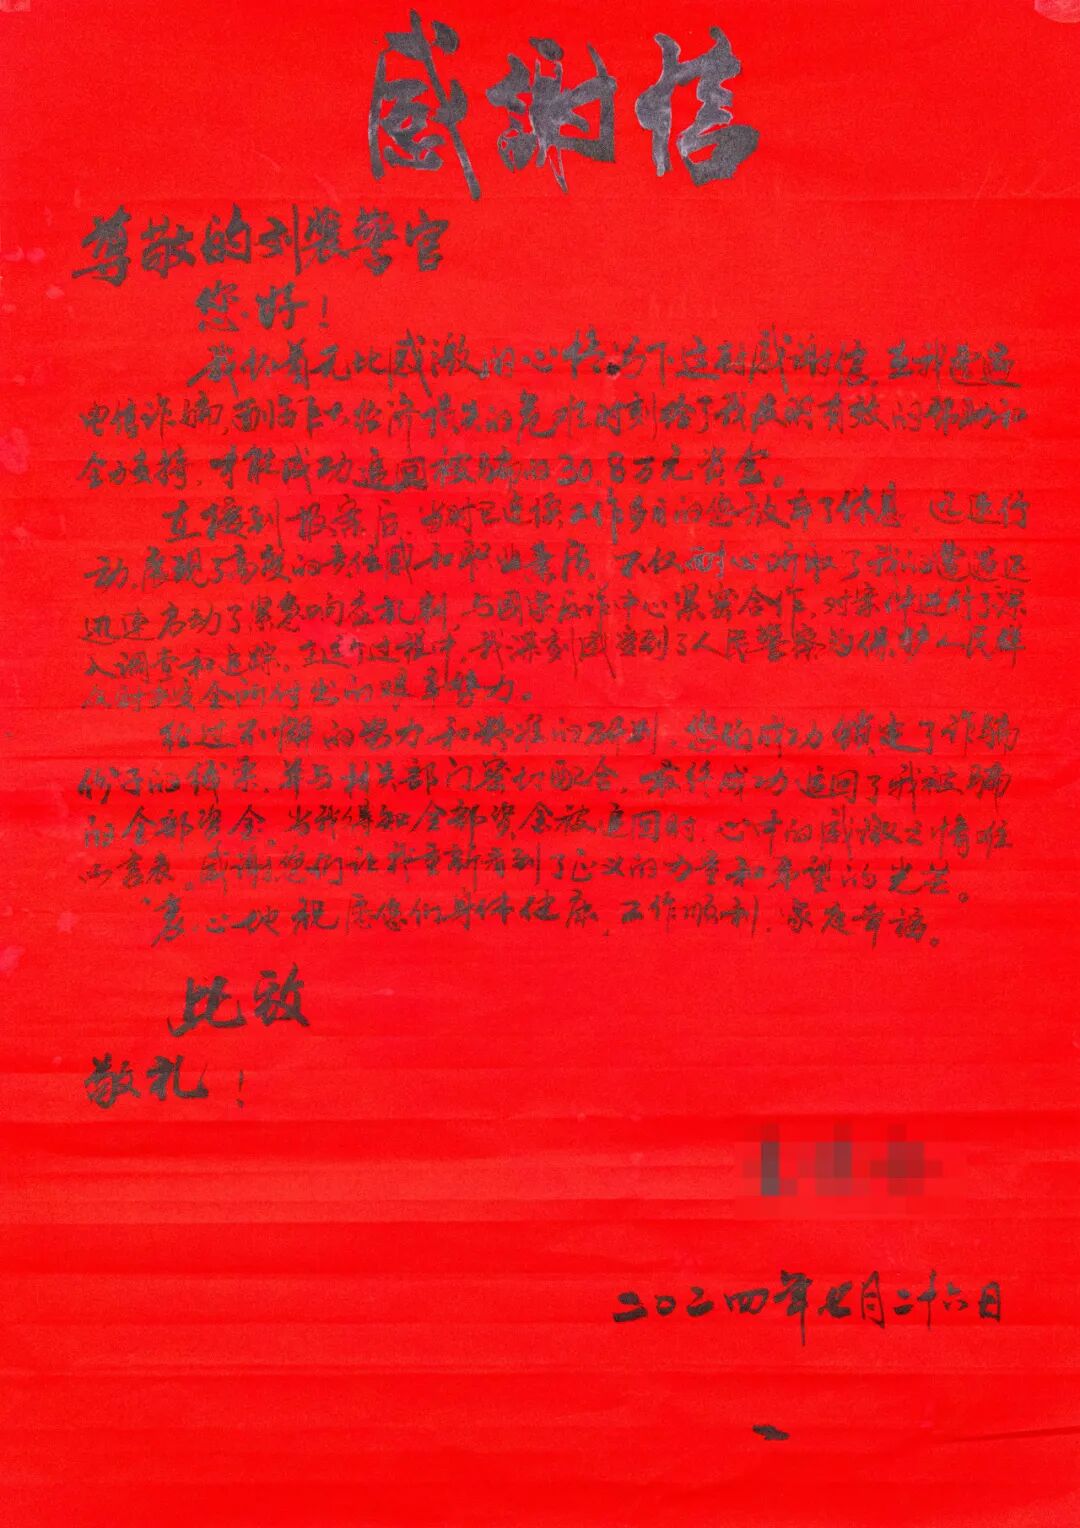 感謝信
尊敬的刘裴警官
您好！
我怀着无比感激的心情写下这封感谢信，在我遭遇
电信诈骗，面临巨大经济损失的危难时刻给了我及时有效的帮助和
全力支持，才能成功追回被骗的30.8万元资金。
在接到报案后，当时已连续工作多日的您放弃了休息，迅速行
动，展现了高度的责任感和职业素质，不仅耐心听取了我的遭遇还
迅速启动了紧急响应机制，与国家反诈中心紧密合作，对案件进行了深
入调查和追踪。在这个过程中，我深刻感受到了人民警察为保护人民群
众财产安全所付出的艰辛努力。
经过不懈的努力和精准的研判，您们成功锁定了诈骗
份子的线索，并与相关部门密切配合，最终成功追回了我被骗
的全部资金，当我得知全部资金被追回时，心中的感激之情难
以言表，感谢您们让我重新看到了正义的力量和希望的光芒。
衷心地祝愿您们身体健康，工作顺利，家庭幸福。
此致
敬礼！
二〇二四年七月二十六日